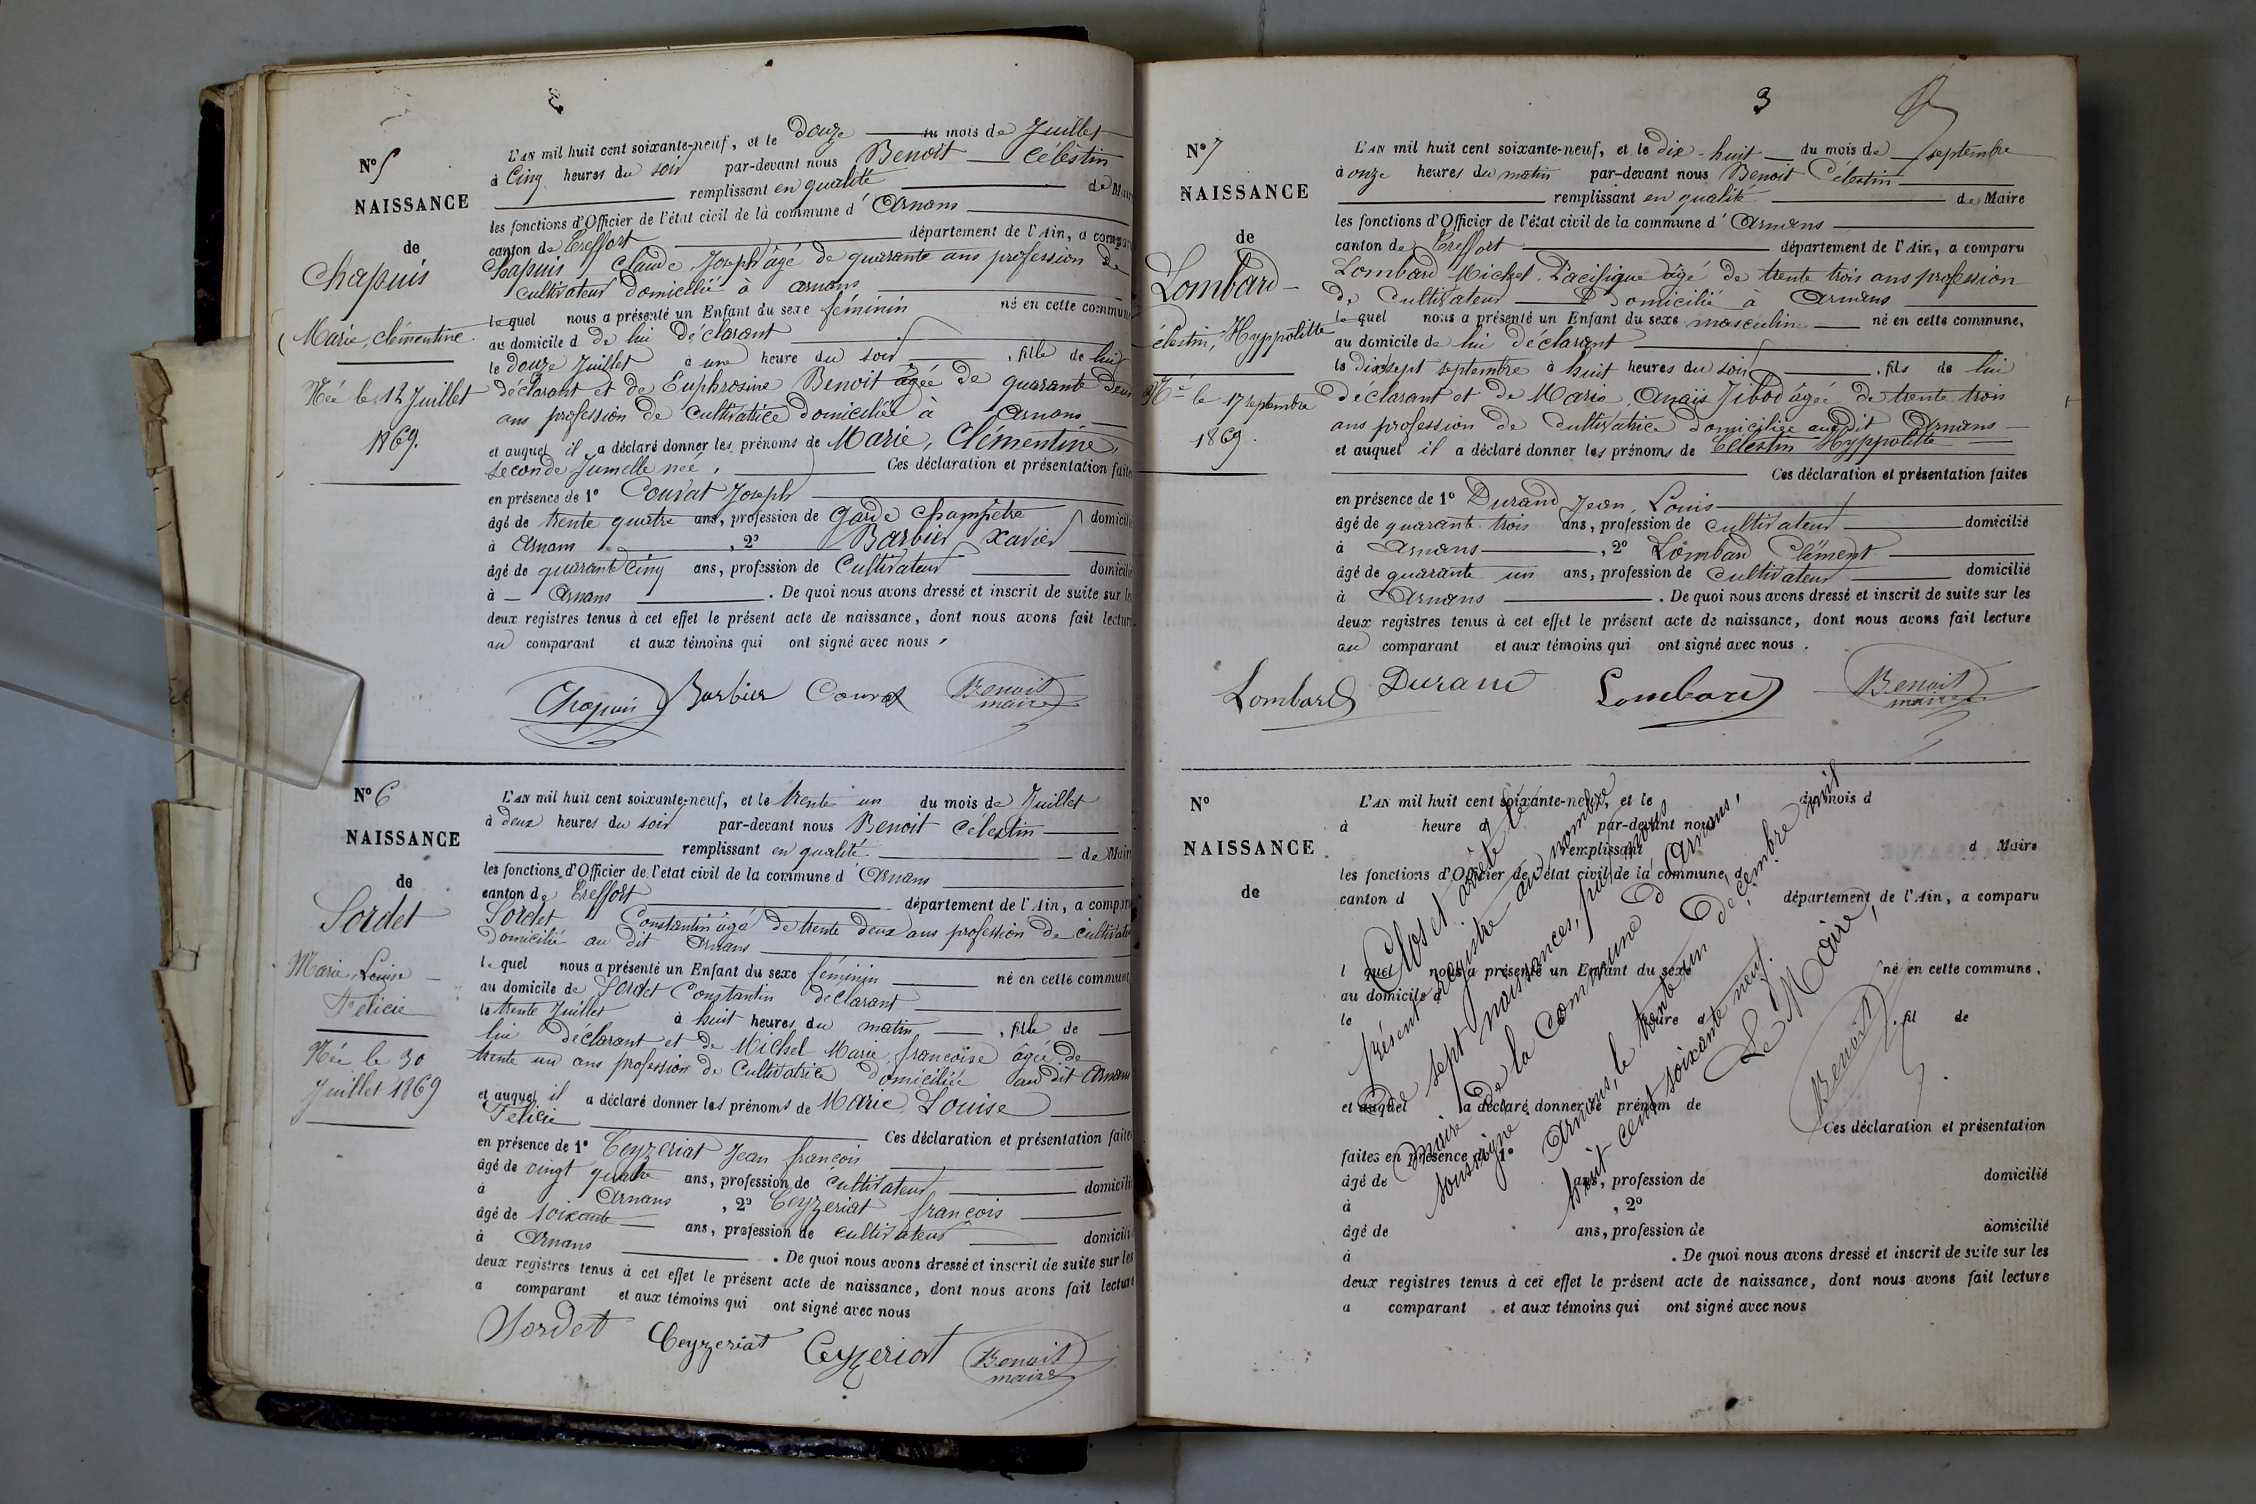 N° 5
NAISSANCE
de
Chapuis
Marie, Clémentine
Née le 12 Juillet
1869.
L'AN mil huit cent soixante-neuf, et le douze du mois de Juillet
à Cinq heures du soir par-devant nous Benoit Célestin
remplissant en qualité de Maire
les fonctions d'Officier de l'état civil de la commune d'Arnans
canton de Treffort département de l'Ain, a comparu
Chapuis Claude Joseph âgé de quarante ans profession de
cultivateur domicilié à Arnans
lequel nous a présenté un Enfant du sexe féminin né en cette commune
au domicile d de lui déclarant
le douze Juillet à une heure du soir, fille de lui
déclarant et de Euphrosine Benoit âgée de quarante deux
ans profession de Cultivatrice domiciliée à Arnans
et auquel il a déclaré donner les prénoms de Marie, Clémentine,
seconde Jumelle née, Ces déclaration et présentation faites
en présence de 1° Couvat Joseph
âgé de trente quatre ans, profession de Garde Champêtre domicilié
à Arnans, 2° Barbier Xavier
âgé de quarante Cinq ans, profession de Cultivateur domicilié
à Arnans. De quoi nous avons dressé et inscrit de suite sur les
deux registres tenus à cet effet le présent acte de naissance, dont nous avons fait lecture
au comparant et aux témoins qui ont signé avec nous,
Chapuis Barbier Couvat Benoit
maire
N° 6
NAISSANCE
de
Sordet
Marie, Louise
Félicie
Née le 30
Juillet 1869
L'AN mil huit cent soixante-neuf, et le trente un du mois de Juillet
à deux heures du soir par-devant nous Benoit Célestin
remplissant en qualité de Maire
les fonctions d'Officier de l'état civil de la commune d'Arnans
canton de Treffort département de l'Ain, a comparu
Sordet Constantin âgé de trente deux ans profession de cultivateur
domicilié au dit Arnans
lequel nous a présenté un Enfant du sexe féminin né en cette commune
au domicile de Sordet Constantin déclarant
le trente Juillet à huit heures du matin, fille de
lui déclarant et de Michel Marie françoise âgée de
trente un ans profession de Cultivatrice domiciliée au dit Arnans
et auquel il a déclaré donner les prénoms de Marie Louise
Félicie
Ces déclaration et présentation faites
en présence de 1° Ceyzeriat Jean françois
âgé de vingt quatre ans, profession de cultivateur domicilié
à Arnans, 2° Ceyzeriat françois
âgé de soixante ans, profession de cultivateur domicilié
à Arnans. De quoi nous avons dressé et inscrit de suite sur les
deux registres tenus à cet effet le présent acte de naissance, dont nous avons fait lecture
a comparant et aux témoins qui ont signé avec nous
Sordet Ceyzeriat Ceyzeriat Benoit
maire
3
N° 7
NAISSANCE
de
Lombard
Célestin, Hyppolitte
Né le 17 septembre
1869.
L'AN mil huit cent soixante-neuf, et le dix-huit du mois de septembre
à onze heures du matin par-devant nous Benoit Célestin
remplissant en qualité de Maire
les fonctions d'Officier de l'état civil de la commune d'Arnans
canton de Treffort département de l'Ain, a comparu
Lombard Michel Pacifique âgé de trente trois ans profession
de Cultivateur domicilié à Arnans
lequel nous a présenté un Enfant du sexe masculin né en cette commune,
au domicile de lui déclarant
le dix sept septembre à huit heures du soir, fils de lui
déclarant et de Marie Anaïs Jibod âgée de trente trois
ans profession de Cultivatrice domiciliée audit Arnans
et auquel il a déclaré donner les prénoms de Célestin Hyppolitte
Ces déclaration et présentation faites
en présence de 1° Durand Jean, Louis
âgé de quarante trois ans, profession de cultivateur domicilié
à Arnans, 2° Lombard Clément
âgé de quarante un ans, profession de Cultivateur domicilié
à Arnans. De quoi nous avons dressé et inscrit de suite sur les
deux registres tenus à cet effet le présent acte de naissance, dont nous avons fait lecture
au comparant et aux témoins qui ont signé avec nous.
Lombard Durand Lombard Benoit
maire
N°
NAISSANCE
de
L'AN mil huit cent soixante-neuf, et le du mois d
à heure d par-devant nous
remplissant d Maire
les fonctions d'Officier de l'état civil de la commune d
canton d département de l'Ain, a comparu
l quel nous a présenté un Enfant du sexe né en cette commune,
au domicile d
le heure d, fil de
et auquel a déclaré donner le prénom de
Ces déclaration et présentation
faites en présence de 1°
âgé de ans, profession de domicilié
à, 2°
âgé de ans, profession de domicilié
à. De quoi nous avons dressé et inscrit de suite sur les
deux registres tenus à cet effet le présent acte de naissance, dont nous avons fait lecture
a comparant et aux témoins qui ont signé avec nous
Clos et arrêté le
présent registre au nombre
de sept naissances, par nous
Maire de la Commune d'Arnans,
soussigné
Arnans, le trente un décembre mil
huit cent soixante neuf.
Le Maire,
Benoit